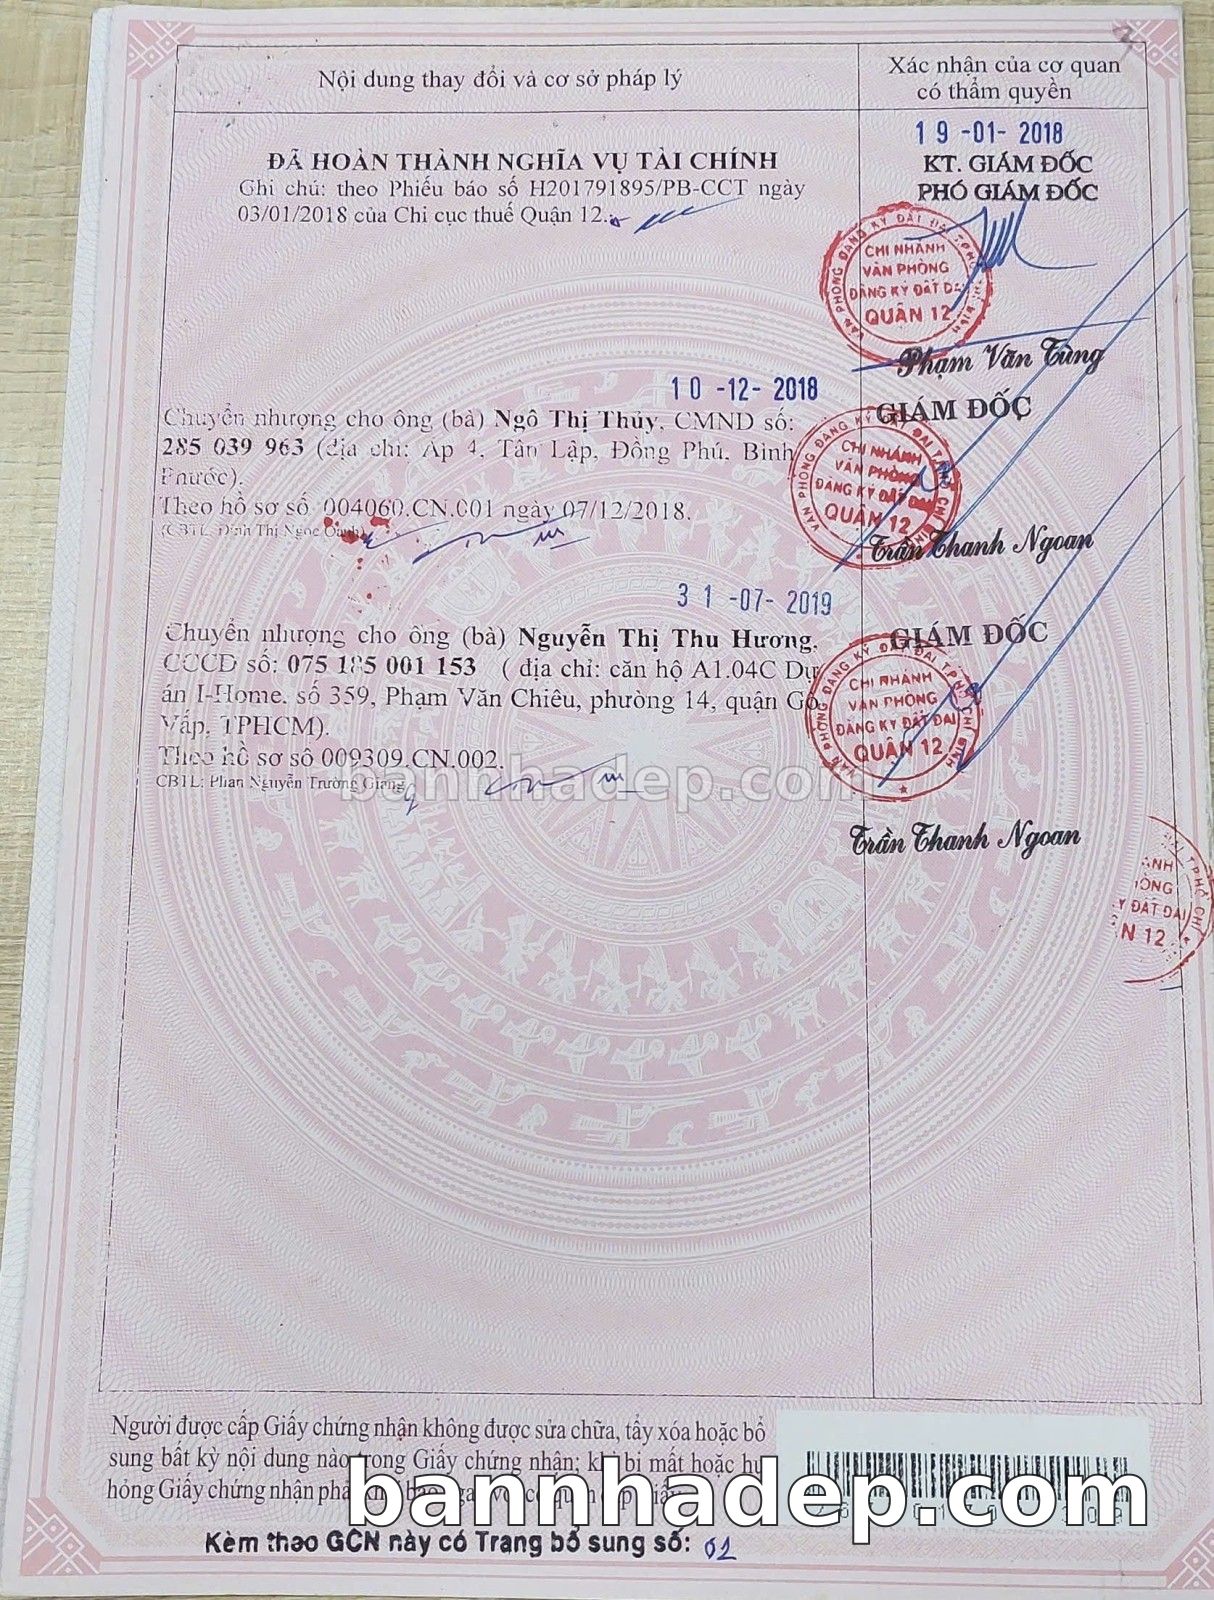 Nội dung thay đổi và cơ sở pháp lý
Xác nhận của cơ quan
có thẩm quyền
19 -01- 2018
ĐÃ HOÀN THÀNH NGHĨA VỤ TÀI CHÍNH
Ghi chú: theo Phiếu báo số H201791895/PB-CCT ngày
03/01/2018 của Chi cục thuế Quận 12.
KT. GIÁM ĐỐC
PHÓ GIÁM ĐỐC
VĂN PHÒNG ĐĂNG KÝ ĐẤT ĐAI
CHI NHÁNH
VĂN PHÒNG
ĐĂNG KÝ ĐẤT ĐAI
QUẬN 12
Phạm Văn Tùng
10 -12- 2018
Chuyển nhượng cho ông (bà) Ngô Thị Thủy, CMND số:
285 039 963 (địa chỉ: Ấp 4, Tân Lập, Đồng Phú, Bình
Phước).
Theo hồ sơ số 004060.CN.001 ngày 07/12/2018.
(CBTL: Đinh Thị Ngọc Oanh)
GIÁM ĐỐC
VĂN PHÒNG ĐĂNG KÝ ĐẤT ĐAI
CHI NHÁNH
VĂN PHÒNG
ĐĂNG KÝ ĐẤT ĐAI
QUẬN 12
Trần Thanh Ngoan
31 -07- 2019
Chuyển nhượng cho ông (bà) Nguyễn Thị Thu Hương,
CCCD số: 075 185 001 153 ( địa chỉ: căn hộ A1.04C Dự
án I-Home, số 359, Phạm Văn Chiêu, phường 14, quận Gò
Vấp, TPHCM).
Theo hồ sơ số 009309.CN.002.
CBTL: Phan Nguyễn Trường Giang
GIÁM ĐỐC
VĂN PHÒNG ĐĂNG KÝ ĐẤT ĐAI TP.HỒ CHÍ MINH
CHI NHÁNH
VĂN PHÒNG
ĐĂNG KÝ ĐẤT ĐAI
QUẬN 12
bannhadep.com
Trần Thanh Ngoan
ÁNH
ÒNG
Ý ĐẤT ĐAI
N 12
Người được cấp Giấy chứng nhận không được sửa chữa, tẩy xóa hoặc bổ
sung bất kỳ nội dung nào trong Giấy chứng nhận; khi bị mất hoặc hư
hỏng Giấy chứng nhận
bannhadep.com
Kèm theo GCN này có Trang bổ sung số: 01